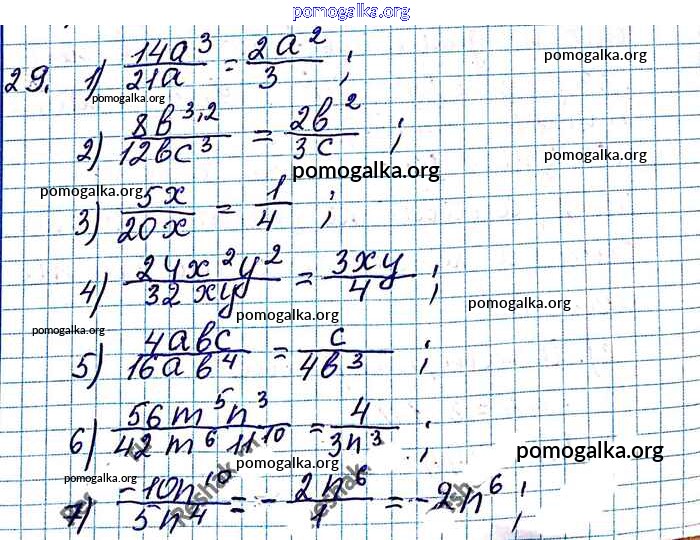 pomogalka.org
29. 1) 14a³/21a = 2a²/3 ; pomogalka.org
pomogalka.org
2) 8b³,²/12bc³ = 2b²/3c ; pomogalka.org
pomogalka.org
pomogalka.org
3) 5x/20x = 1/4 ;
4) 24x²y²/32xy = 3xy/4 ;
pomogalka.org pomogalka.org
pomogalka.org
5) 4abc/16ab⁴ = c/4b³ ;
6) 56m⁵n³/42m⁶n¹⁰ = 4/3n³ ;
pomogalka.org
pomogalka.org pomogalka.org
7) -10n¹⁰/5n⁴ = - 2n⁶/1 = -2n⁶ ;